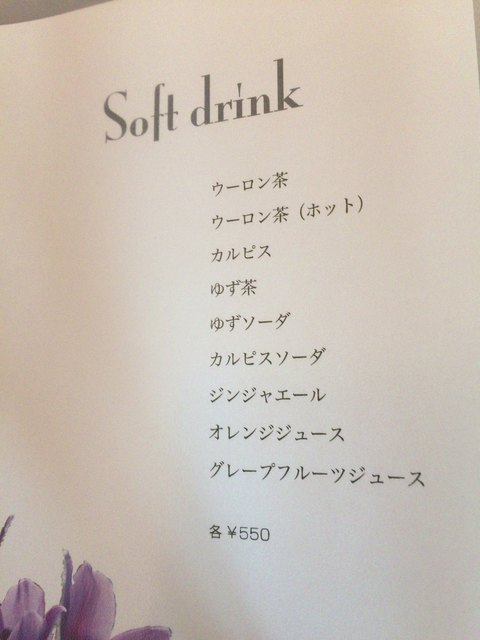 Soft drink
ウーロン茶
ウーロン茶（ホット）
カルピス
ゆず茶
ゆずソーダ
カルピスソーダ
ジンジャエール
オレンジジュース
グレープフルーツジュース
各￥550